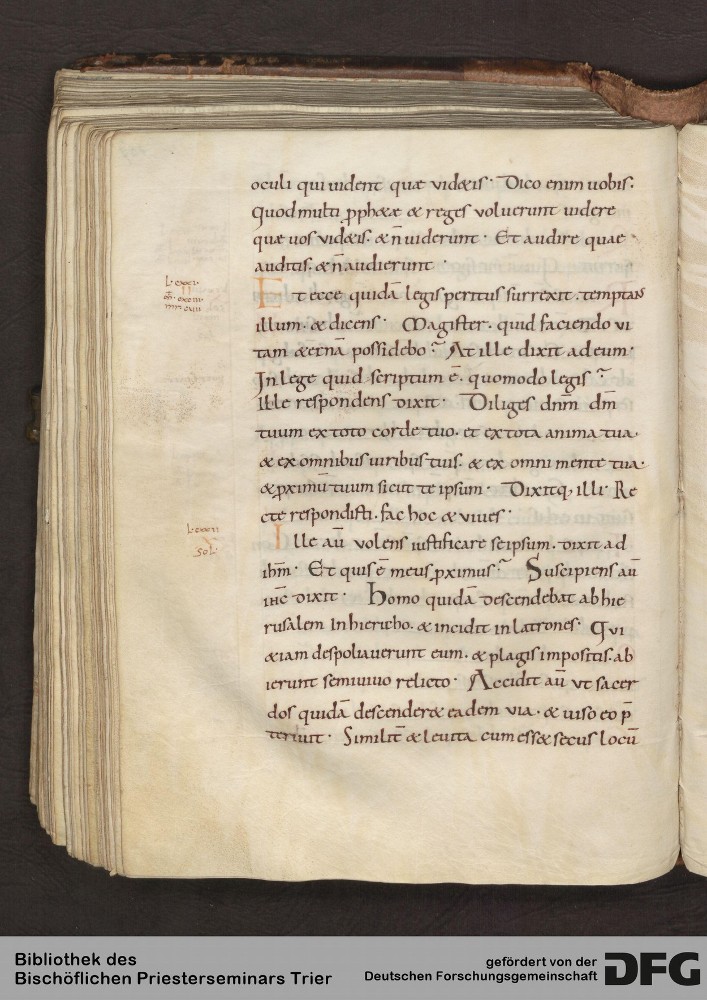 oculi qui uident quæ uidetis· Dico enim uobis·
Quod multi pphetæ & reges voluerunt uidere
quæ uos uidetis· & n̄ uiderunt· Et audire quae
auditis· & n̄ audierunt·
L·cxxi·
Et ecce quidā legis peritus surrexit· temptans
illum· & dicens· Magister· quid faciendo vi
tam &ernā possidebo? At ille dixit ad eum·
In lege quid scriptum ē· quomodo legis?
Ille respondens dixit· Diliges dnm̄ dm̄
tuum ex toto corde tuo· et ex tota anima tua·
& ex omnibus uiribus tuis· & ex omni mente tua·
& proximū tuum sicut te ipsum· Dixitq; illi· Re
cte respondisti· fac hoc & viues·
L·cxxii
sol·
Ille aū volens iustificare seipsum· dixit ad
ihm̄· Et quis ē meus proximus? Suscipiens aū
ihc̄ dixit· Homo quidā descendebat ab hie
rusalem in hiericho· & incidit in latrones· Qui
&iam despoliauerunt eum· & plagis impositis· ab
ierunt semiuiuo relicto· Accidit aū ut sacer
dos quidā descender& eadem via· & uiso eo p̄
teriuit· Similit̄ & leuita cum ess& secus locū
Bibliothek des
Bischöflichen Priesterseminars Trier
gefördert von der
Deutschen Forschungsgemeinschaft
DFG